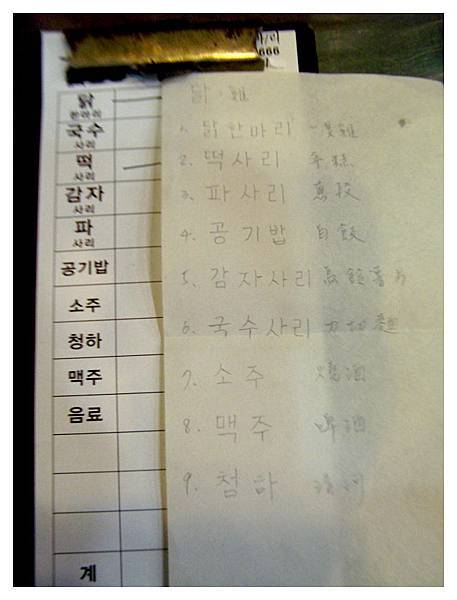 666
닭
한마리
국수
사리
떡
사리
감자
사리
파
사리
공기밥
소주
청하
맥주
음료
계
닭 : 雞
1. 닭한마리 一隻雞
2. 떡사리 年糕
3. 파사리 蔥段
4. 공기밥 白飯
5. 감자사리 馬鈴薯片
6. 국수사리 刀切麵
7. 소주 燒酒
8. 맥주 啤酒
9. 첨하 清河